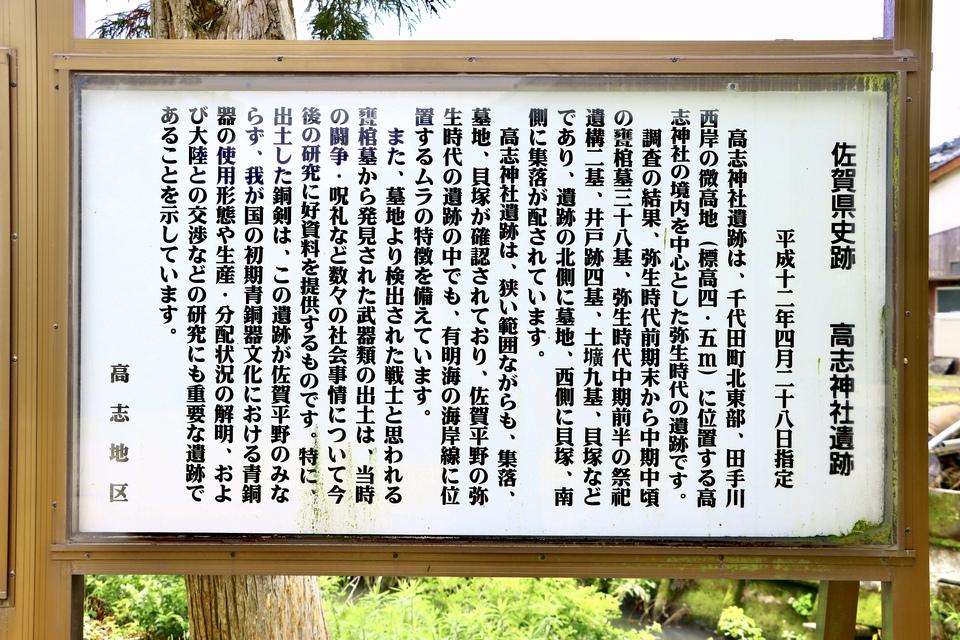 佐賀県史跡　高志神社遺跡
平成十二年四月二十八日指定
高志神社遺跡は、千代田町北東部、田手川
西岸の微高地（標高四・五ｍ）に位置する高
志神社の境内を中心とした弥生時代の遺跡です。
調査の結果、弥生時代前期末から中期中頃
の甕棺墓三十八基、弥生時代中期前半の祭祀
遺構二基、井戸跡四基、土壙九基、貝塚など
であり、遺跡の北側に墓地、西側に貝塚、南
側に集落が配されています。
高志神社遺跡は、狭い範囲ながらも、集落、
墓地、貝塚が確認されており、佐賀平野の弥
生時代の遺跡の中でも、有明海の海岸線に位
置するムラの特徴を備えています。
また、墓地より検出された戦士と思われる
甕棺墓から発見された武器類の出土は、当時
の闘争・呪礼など数々の社会事情について今
後の研究に好資料を提供するものです。特に、
出土した銅剣は、この遺跡が佐賀平野のみな
らず、我が国の初期青銅器文化における青銅
器の使用形態や生産・分配状況の解明、およ
び大陸との交渉などの研究にも重要な遺跡で
あることを示しています。
高志地区